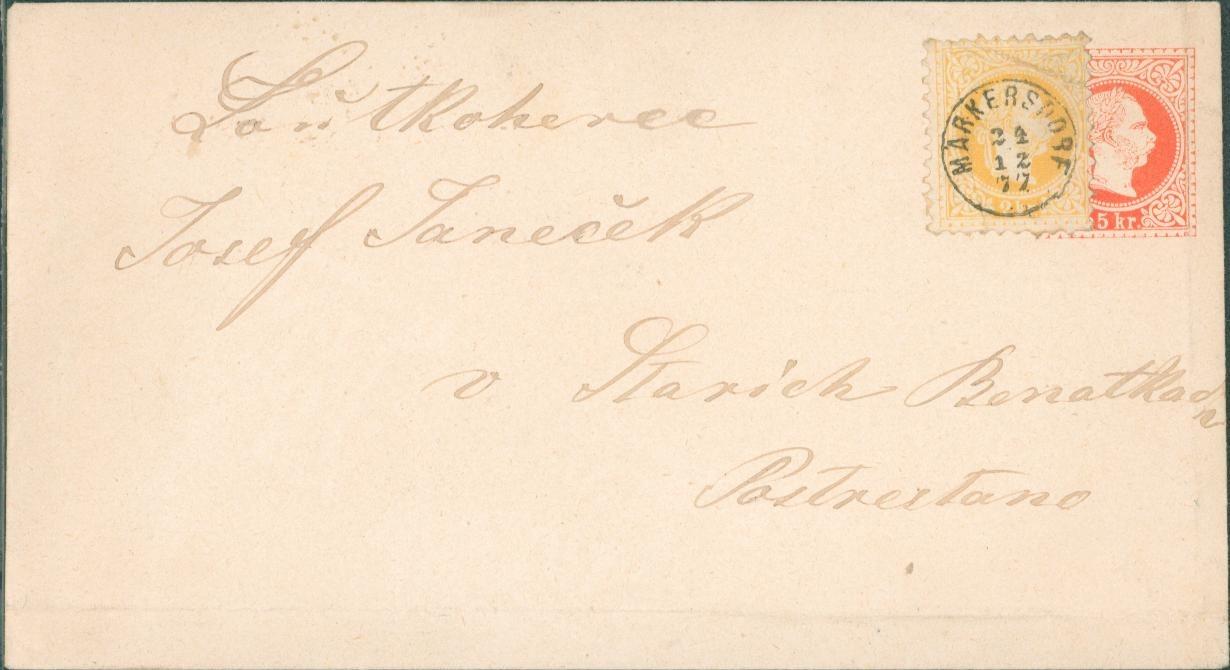 Loutkoherec
Josef Janeček
v Starich Benatkach
Postrestano
MÄRKERSDORF
24
12
77
2
5 kr.